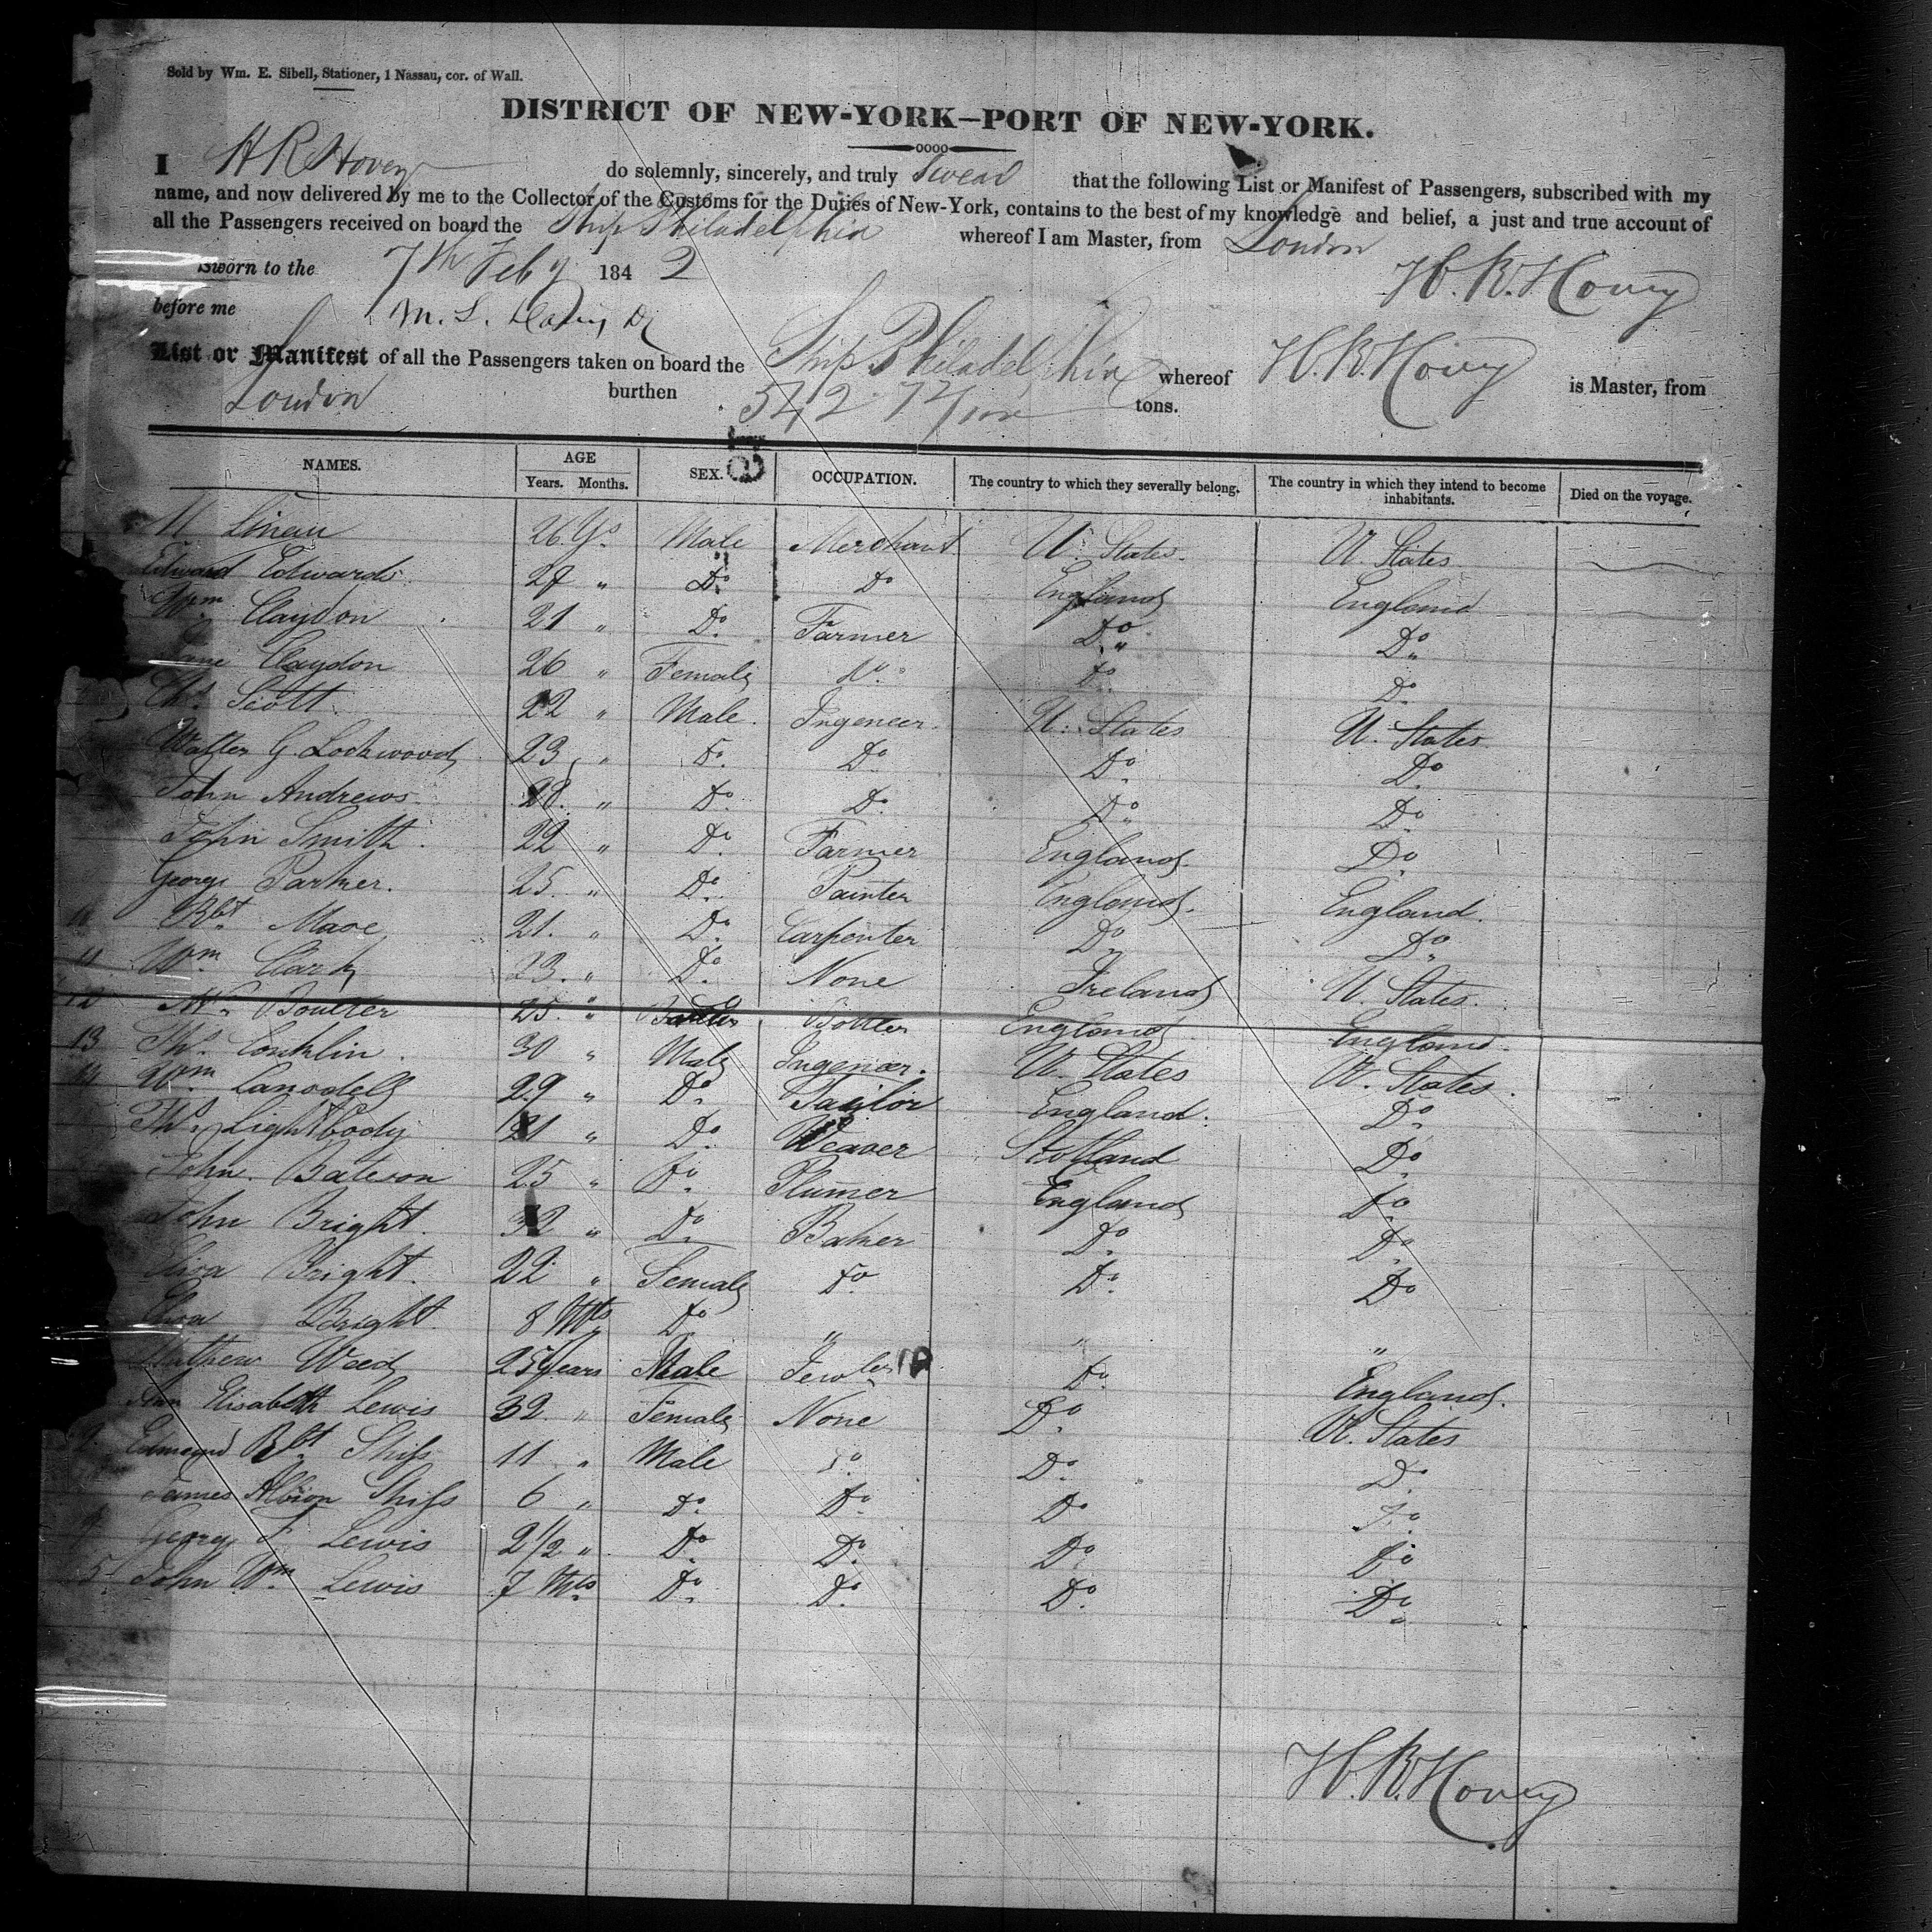 Sold by Wm. E. Sibell, Stationer, 1 Nassau, cor. of Wall.
DISTRICT OF NEW-YORK—PORT OF NEW-YORK.
I H R Hovey do solemnly, sincerely, and truly Swear that the following List or Manifest of Passengers, subscribed with my
name, and now delivered by me to the Collector of the Customs for the Duties of New-York, contains to the best of my knowledge and belief, a just and true account of
all the Passengers received on board the Ship Philadelphia whereof I am Master, from London
Sworn to the 7th Feby 1842 H. R. Hovey
before me M. L.
List or Manifest of all the Passengers taken on board the Ship Philadelphia whereof H. R. Hovey is Master, from
London burthen 542 72/100 tons.
NAMES. AGE Years. Months. SEX. OCCUPATION. The country to which they severally belong. The country in which they intend to become inhabitants. Died on the voyage.
26 Ys. Male Merchant U. States. U. States.
Edward Edwards 27 " Do. Do England England
Wm Claydon 21 " Do. Farmer Do. Do.
Jane Claydon 26 " Female Do. Do. Do.
Ths. Scott 22 " Male. Ingeneer. U. States U. States.
Walter G. Lockwood 23 " Do. Do Do. Do.
John Andrews 28. " Do. Do. Do. Do.
John Smith. 22 " Do. Farmer England. Do.
George Parker. 25. " Do. Painter England. England.
10 Rbt. Mace 21. " Do. Carpenter Do. Do.
11 Wm. Clark 23. " Do. None Ireland U. States.
12 Boulter 25. " England England.
13 Ths. Conklin. 30 " Male Ingeneer. U. States U. States.
14 Wm. Lansdell 29 " Do. Tailor England. Do.
Ths. Lightbody 21 " Do. Weaver Scotland Do.
John. Bateson 25 " Do. Plumer England Do.
John Bright. 32 " Do. Baker Do. Do.
Elisa Bright. 22 " Female Do. Do. Do
Elisa Bright. 8 Mths Do. " " "
Mathew Weed 25 Years Male Do. England.
Ann Elisabeth Lewis 32 " Female None Do. U. States
Edmund Rbt. Ships 11 " Male Do. Do. Do.
James Albion Ships 6 " Do. Do. Do Do.
George F. Lewis 2 1/2 " Do. Do. Do Do
5 John Wm. Lewis 7 Mths. Do. Do. Do. Do.
H. R. Hovey